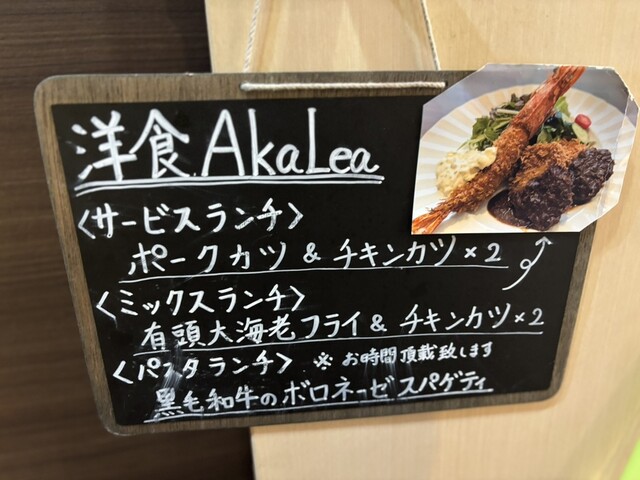 洋食 AkaLea
<サービスランチ>
ポークカツ & チキンカツ×2
<ミックスランチ>
有頭大海老フライ & チキンカツ×2
<パスタランチ> ※ お時間頂戴致します
黒毛和牛のボロネーゼスパゲティ